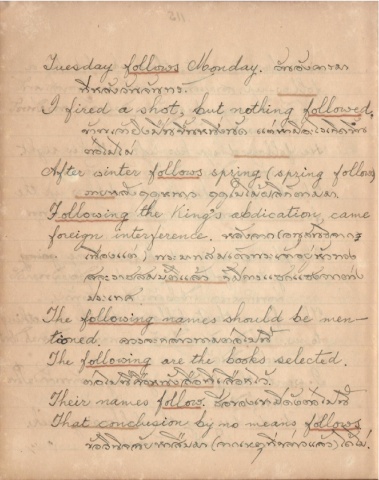 Tuesday follows Monday. วันอังคารมา
ทีหลังวันจันทร์.
I fired a shot, but nothing followed.
ข้าพเจ้ายิงปืนขึ้นนัดหนึ่ง แต่หามีอะไรเกิดขึ้น
ต่อไปไม่
After winter follows spring (spring follows)
ภายหลังฤดูหนาว ฤดูใบไม้ผลิก็ตามมา
Following the King's abdication, came
foreign interference.
สละราชสมบัติแล้ว ก็มีการแทรกแซงจากต่าง
ประเทศ
The following names should be men-
tioned. ควรจะกล่าวนามต่อไปนี้
The following are the books selected.
ต่อไปนี้คือหนังสือที่เลือกไว้.
Their names follow. ชื่อของเขามีดังต่อไปนี้
That conclusion by no means follows